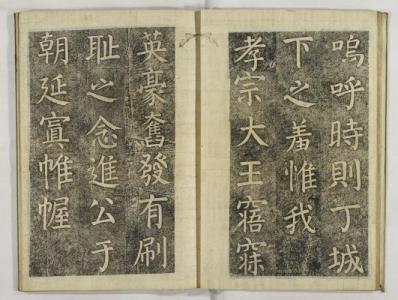 嗚呼時則丁城
下之羞惟我
孝宗大王寤寐
英豪奮發有刷
耻之念進公于
朝延寘帷幄